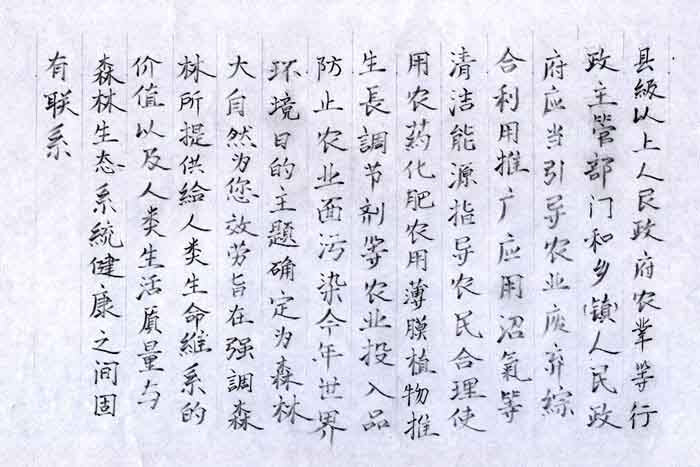 县级以上人民政府农業等行
政主管部门和乡(镇)人民政
府应当引导农业废弃綜
合利用推广应用沼氣等
清洁能源指导农民合理使
用农药化肥农用薄膜植物推
生長調节剂等农业投入品
防止农业面污染今年世界
环境日的主题确定为森林
大自然为您效劳旨在强調森
林所提供給人类生命維系的
价值以及人类生活质量与
森林生态系統健康之间固
有联系